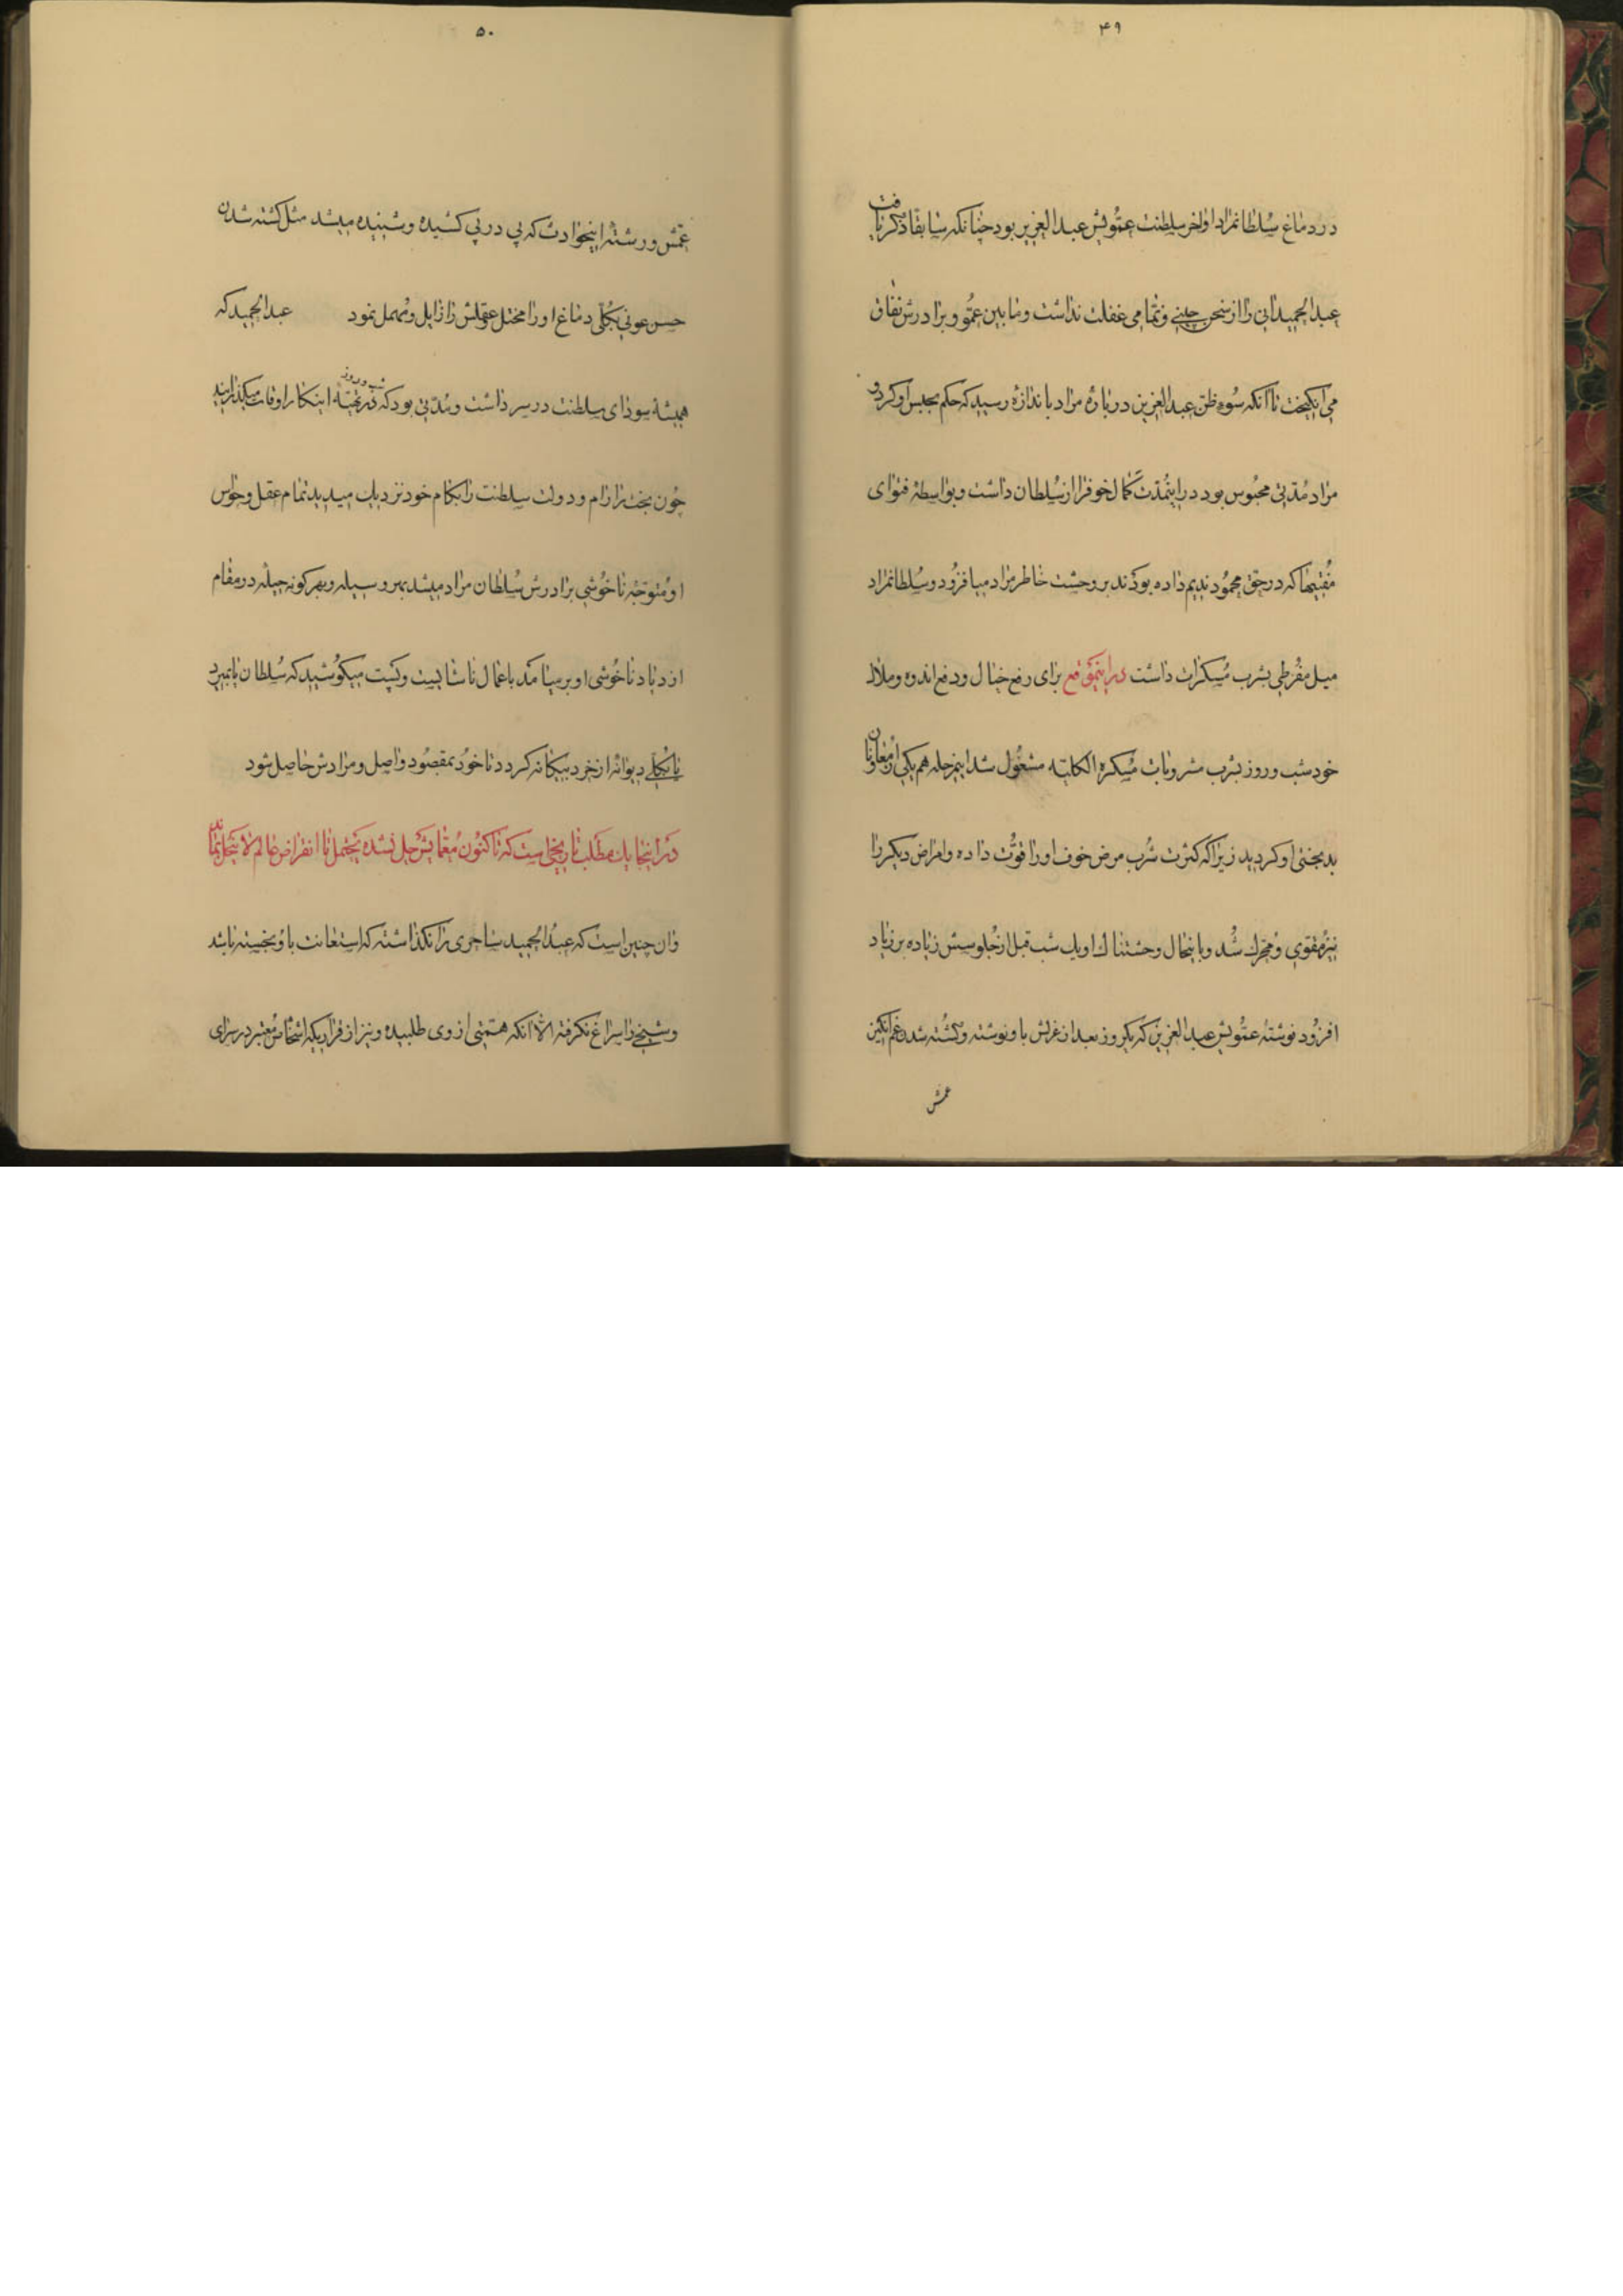 ۴۹
در دماغ سلطانمراد اواخر سلطنت عمویش عبد العزیز بود چنانکه سابقا ذکر یافت
عبد الحمید آنی را از سخن چینی و نمامی غفلت نداشت و مابین عمو و برادرش نفاق
می انگیخت تا آنکه سوء ظن عبد العزیز درباره مراد باندازه رسید که حکم بحبس او کرد و
مراد مدتی محبوس بود در اینمدت کمال خوف را از سلطان داشت و بواسطه فتوای
مفتیها که در حق محمود ندیم داده بودند بر وحشت خاطر مراد میافزود و سلطانمراد
میل مفرطی بشرب مسکرات داشت در اینموقع برای رفع خیال و دفع اندوه و ملال
خود شب و روز بشرب مشروبات مسکره الکلیه مشغول شد اینمرحله هم یکی از معاونان
بدبختی او کردید زیرا که کثرت شرب مرض خوف او را قوت داده و امراض دیکر را
نیز مقوی و محرک شد و باینحال وحشتناک او یک شب قبل از جلوسش زیاده بر زیاد
افزود نوشته عمویش عبد العزیز که یکروز بعد از عزلش باو نوشته و کشته شدن غم انکیز
عمش
۵۰
عمش و رشته اینحوادث که پی در پی کشیده و شنیده میشد مثل کشته شدن
حسن عونی بکلی دماغ او را مختل و عقلش را زایل و مهمل نمود عبد الحمید که
همیشه سودای سلطنت در سر داشت و مدتی بود که شب و روز در تهیه اینکار اوقات میکذرانید
چون بخت را رام و دولت سلطنت را بکام خود نزدیک میدید تمام عقل و حواس
او متوجه ناخوشی برادرش سلطان مراد میشد بهر وسیله و بهر کونه حیله در مقام
ازدیاد ناخوشی او بر میآمد باعمال ناشایست و پست میکوشید که سلطان یا بمیرد
یا بکلی دیوانه از خرد بیکانه کردد تا خود بمقصود واصل و مرادش حاصل شود
در اینجا یک مطلب تاریخی است که تا کنون معمایش حل نشده یحتمل تا انقراض عالم لا ینحل بماند
و آن چنین است که عبد الحمید ساحری را نکذاشته که استعانت باو نجسته باشد
و شیخی را سراغ نکرفته الا آنکه همتی از وی طلبیده و نیز از قراریکه اشخاص معتبر در سرای